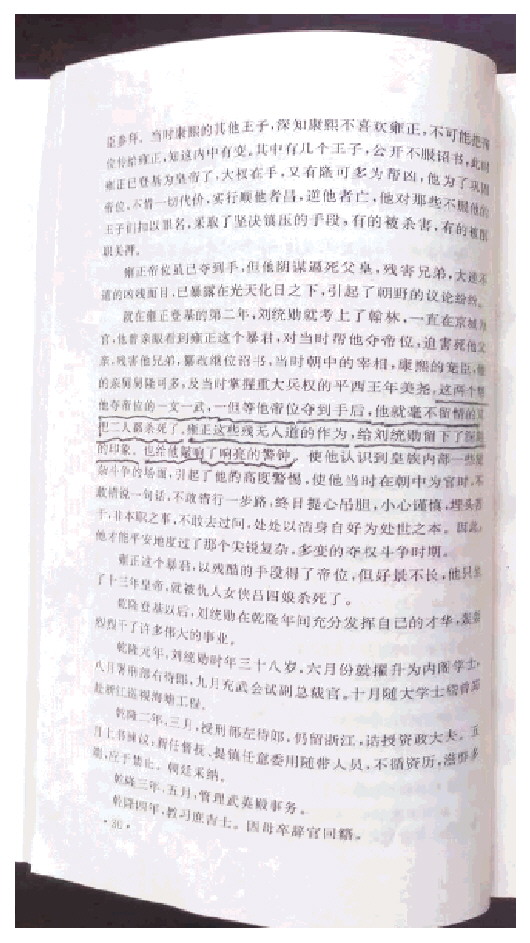 臣参拜。当时康熙的其他王子,深知康熙不喜欢雍正,不可能把帝
位传给雍正,知这内中有变。其中有几个王子,公开不服诏书,此时
雍正已登基为皇帝了,大权在手,又有隆可多为帮凶,他为了巩固
帝位,不惜一切代价,实行顺他者昌,逆他者亡,他对那些不服他的
王子们加以罪名,采取了坚决镇压的手段,有的被杀害,有的被削
职关押。
雍正帝位虽已夺到手,但他阴谋逼死父皇,残害兄弟,大逆不
道的凶残面目,已暴露在光天化日之下,引起了朝野的议论纷纷。
就在雍正登基的第二年,刘统勋就考上了翰林,一直在京城为
官,他曾亲眼看到雍正这个暴君,对当时帮他夺帝位,迫害死他父
亲,残害他兄弟,篡改继位诏书,当时朝中的宰相,康熙的宠臣,他
的亲舅舅隆可多,及当时掌握重大兵权的平西王年美尧,这两个帮
他夺帝位的一文一武,一但等他帝位夺到手后,他就毫不留情的
把二人都杀死了,雍正这些残无人道的作为,给刘统勋留下了深刻
的印象。也给他敲响了响亮的警钟。使他认识到皇族内部一些
斗争的场面,引起了他的高度警惕,使他当时在朝中为官时,不
敢错说一句话,不敢错行一步路,终日提心吊胆,小心谨慎,埋头苦
干,非本职之事,不敢去过问,处处以洁身自好为处世之本。因此,
他才能平安地度过了那个尖锐复杂,多变的夺权斗争时期。
雍正这个暴君,以残酷的手段得了帝位,但好景不长,他只坐
了十三年皇帝,就被仇人女侠吕四娘杀死了。
乾隆登基以后,刘统勋在乾隆年间充分发挥自己的才华,轰轰
烈烈干了许多伟大的事业。
乾隆元年,刘统勋时年三十八岁,六月份就擢升为内阁学士,
八月署刑部右侍郎,九月充武会试副总裁官。十月随大学士嵇曾筠
赴浙江巡视海塘工程。
乾隆二年,三月,授刑部左侍郎,仍留浙江,诰授资政大夫。五
月上书谏议,新任督抚、提镇任意委用随带人员,不循资历,滋弊多
端,应予禁止。朝廷采纳。
乾隆三年,五月,管理武英殿事务。
乾隆四年,教习庶吉士。因母卒辞官回籍。
·30·